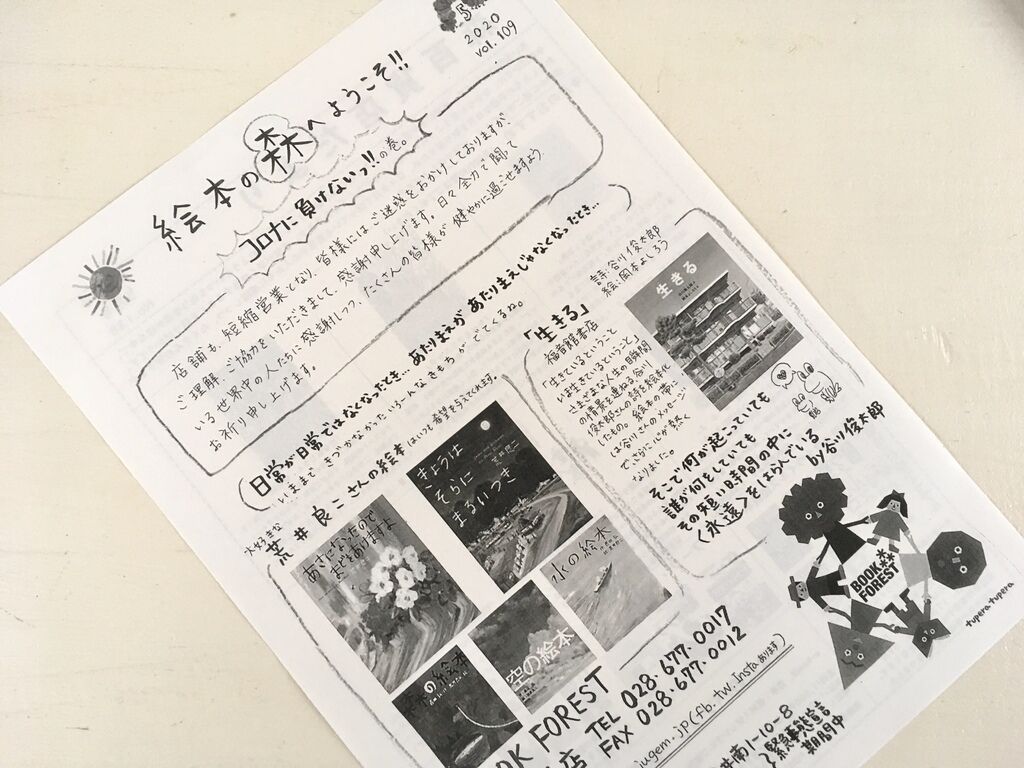 5
2020
vol.109
絵本の森へようこそ!!
コロナに負けないっ!!の巻。
店舗も、短縮営業となり、皆様にはご迷惑をおかけしておりますが、
ご理解、ご協力をいただきまして、感謝申し上げます。日々全力で闘って
いる世界中の人たちに感謝しつつ、たくさんの皆様が健やかに過ごせますよう
お祈り申し上げます。
日常が日常ではなくなったとき、あたりまえがあたりまえじゃなくなったとき…
いままできづかなかったいろーんなきもちがでてくるね。
大好きな
荒井良二さんの絵本はいつも希望を与えてくれます。
あさになったので
まどをあけますよ
きょうは
そらに
まるいつき
荒井良二
水の絵本
空の絵本
の絵本
詩:谷川俊太郎
絵:岡本よしろう
生きる
「生きる」
福音館書店
「生きているということ
いま生きているということ」
さまざまな人生の日瞬間
の情景を連ねる谷川
俊太郎さんの詩を絵本化
したもの。絵本の帯に
は谷川さんのメッセージ
でさらに心が熱く
なりました。
そこで何が起こっていても
誰が何をしていても
その短い時間の中に
〈永遠〉をはらんでいる
by谷川俊太郎
BOOK
FOREST
tupera tupera
OK FOREST
店 TEL 028.677.0017
FAX 028.677.0012
jugem.jp(fb.tw.Instaあります)
井南1-10-8
緊急事態宣言
期間中